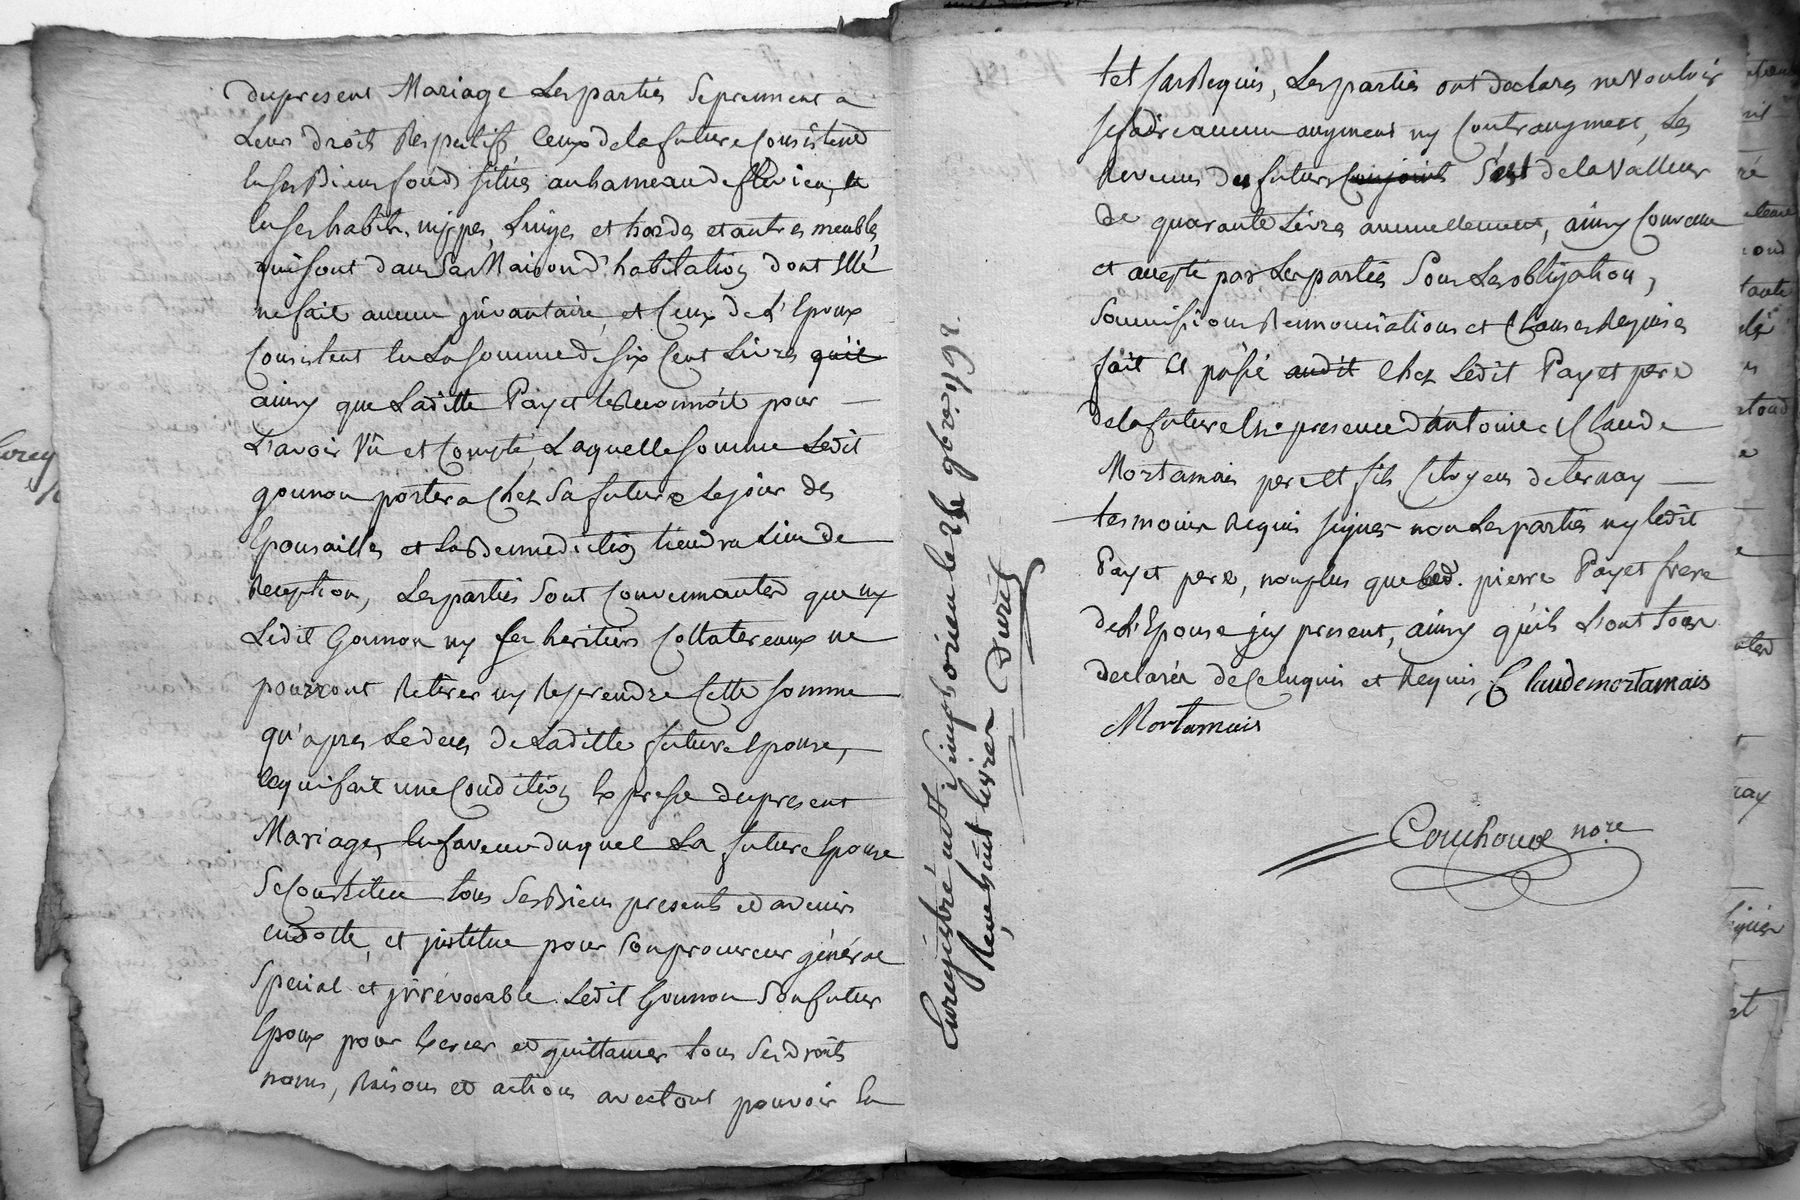 du present Mariage Les parties se prennent a
Leurs droits Respectifs Ceux de la future Consistent
en ses Biens fonds situés au hameau de flevieu, et
en ses habits, nippes, Linges et hardes et autres meubles
qui sont dans sa Maison d'habitation dont Elle
ne fait aucun jnvantaire, et Ceux de L'Epoux
Consistent en La somme de six Cent Livres qu'il
ainsy que Laditte Payet le Reconnoit pour —
L'avoir Vû et Compté, Laquelle somme Ledit
gounon portera Chez sa future Le jour des
Epousailles et La Bennediction tiendra Lieu de
Reception, Les parties sont Convenantes que ny
Ledit Gounon ny ses heritiers Collateraux ne
pourront Retirer ny Reprendre Cette somme
qu'apres Le deces de Laditte future Epouse,
Ce qui fait une Condition Expresse du present
Mariage, En faveur duquel La future Epouse
se Constitue tous ses Biens presents et avenirs
en dotte, et jnstitue pour son procureur général
special et jrrévocable Ledit Gounon son futur
Epoux pour Exercer et quittancer tous ses droits
noms, Raisons et actions avec tout pouvoir En
tel Cas Requis, Les parties ont declaré ne Vouloir
se faire aucun augment ny Contraugment, Les
Revenus des futurs Conjoints sont de la Valleur
de quarante Livres annuellement, ainsy Convenu
et accepté par Les parties sous Les obligation,
soumissions Rennonciations et Clauses Requises
fait et passé audit Chez Ledit Payet pere
de la future En presence d'antoine et Claude
Mortamais pere et fils, Citoyens de ternay —
tesmoins Requis signes non Les parties ny ledit
Payet pere, non plus que led. pierre Payet frere
de L'Epouse jcy present, ainsy qu'ils L'ont tous
declarés de Ce Enquis et Requis, Claude mortamais
Mortamais
Couchoud nore
Enregistré a st. simphorien le 9bre. 1792.
Reçu huit livres Duvil